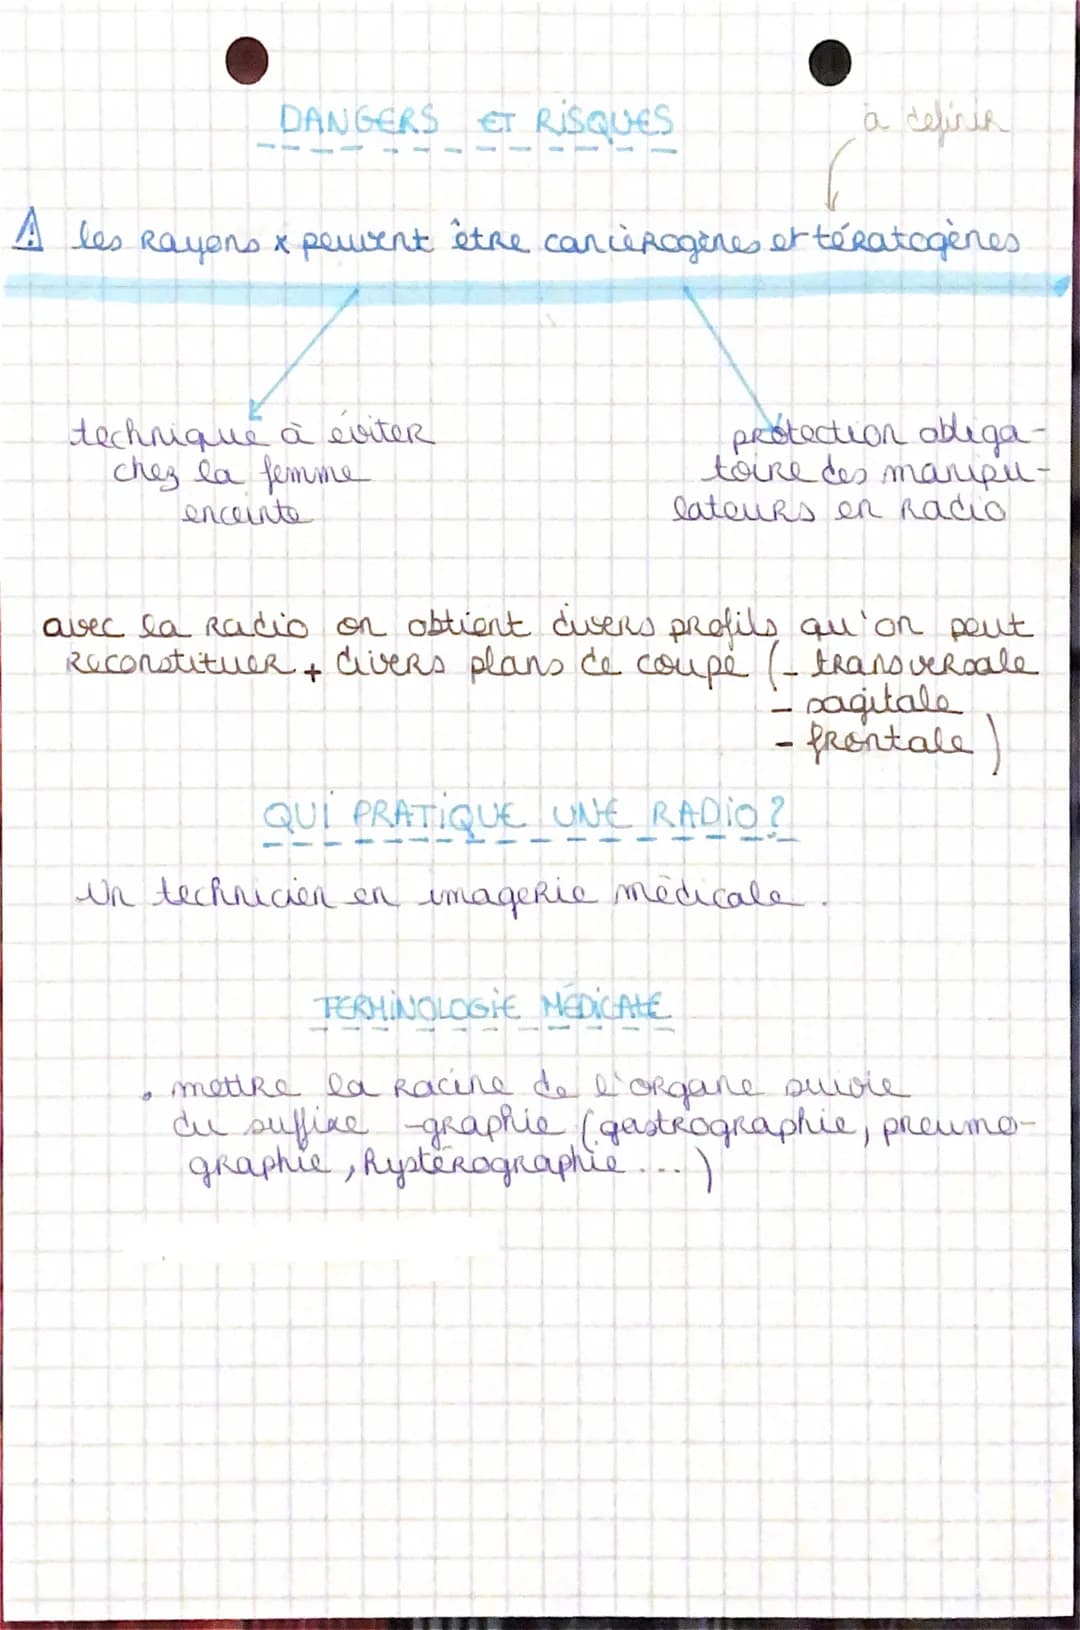 DANGERS ET RISQUES
à définir
⚠ les rayons x peuvent être cancérogènes et tératogènes
technique à éviter
chez la femme
enceinte
protection obliga-
toire des manipu-
lateurs en radio
avec la radio on obtient divers profils qu'on peut
reconstituer + divers plans de coupe (- transversale
- sagitale
- frontale)
QUI PRATIQUE UNE RADIO?
Un technicien en imagerie médicale.
TERMINOLOGIE MÉDICALE
• mettre la racine de l'organe suivie
du suffixe -graphie (gastrographie, pneumo-
graphie, hystérographie...)